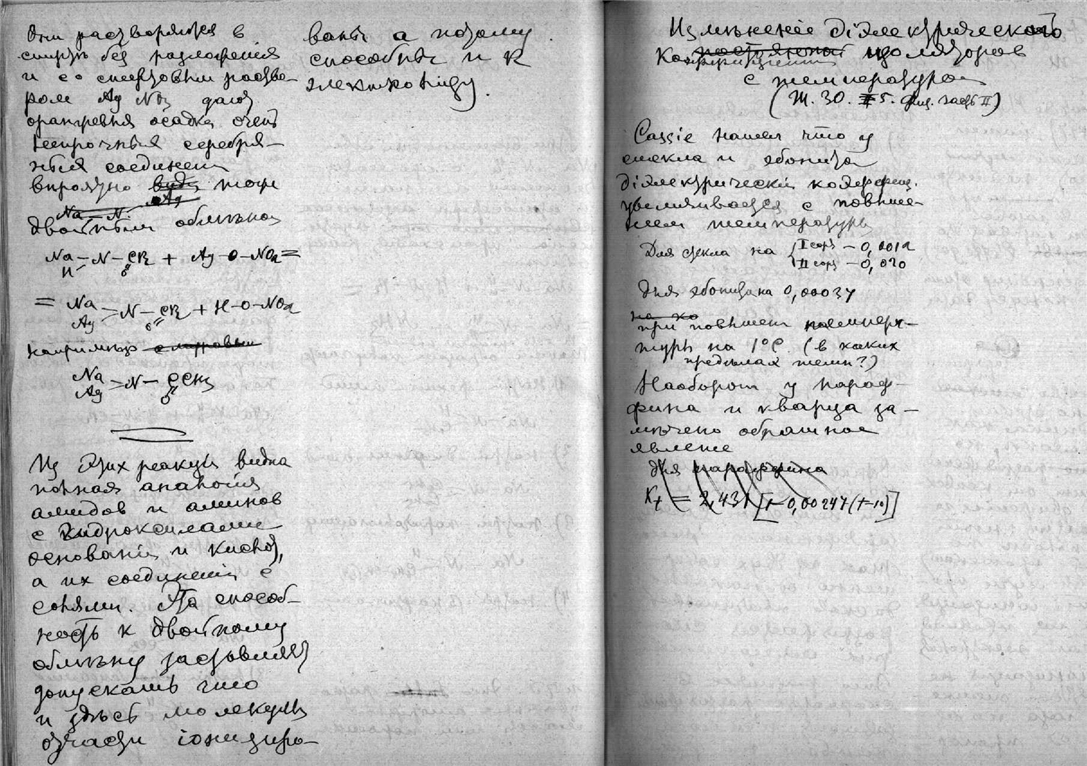 Они растворяются в
спирте без разложения
и со спиртовым раство-
ром Ag NO₃ дают
оранжевые осадки очень
непрочныя серебря-
ныя соединенія
вѣроятно тоже
Na – N. Ag
двойным обмѣном
Na – N – CR + Ag – O – NO₂ =
H O
= Na Ag > N – CR + H – O – NO₂
O
например
Na Ag > N – CCH₃
O
Из этих реакцій видна
полная аналогія
амидов и аминов
с гидроксилами
основаній и кислот,
а их соединеній с
солями. Эта способ-
ность к двойному
обмѣну заставляет
допускать что
и здѣсь молекулы
отчасти іонизиро-
ваны а потому
способны и к
электролизу.
Измѣненіе діэлектрическаго
Коэффиціента изоляторов
с температурою
(Т. 30. 5. Физ. часть II)
Cassie нашел что у
стекла и эбонита
діэлектрическій коэффиц.
увеличивается с повыше-
нием температуры
Для стекла на { I сорт – 0,0012
II сорт – 0,020
для эбонита на 0,00037
при повышеніи темпера-
туры на 1°C. (в каких
предѣлах темп?)
Наоборот у параф-
фина и кварца за-
мѣчено обратное
явленіе
для параффина
K_t = 2,431 [1 – 0,00247 (t – 10)]